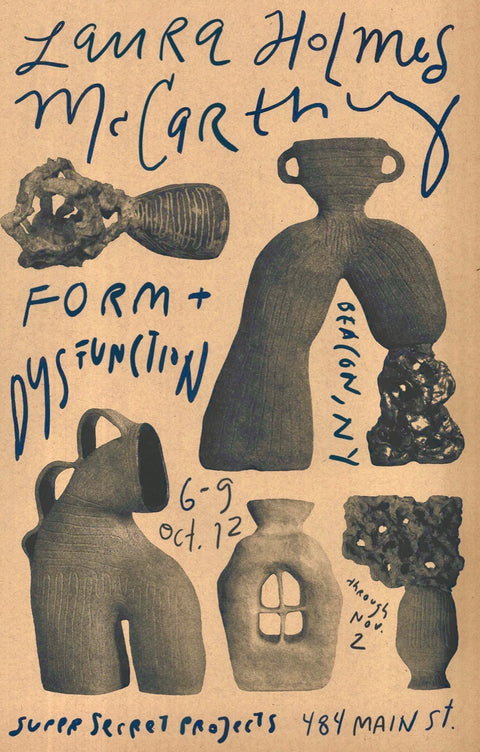 Laura Holmes
McCarthy
FORM +
DYSFUNCTION
BEACON, NY
6-9
Oct. 12
through
Nov.
2
Super Secret Projects 484 MAIN St.